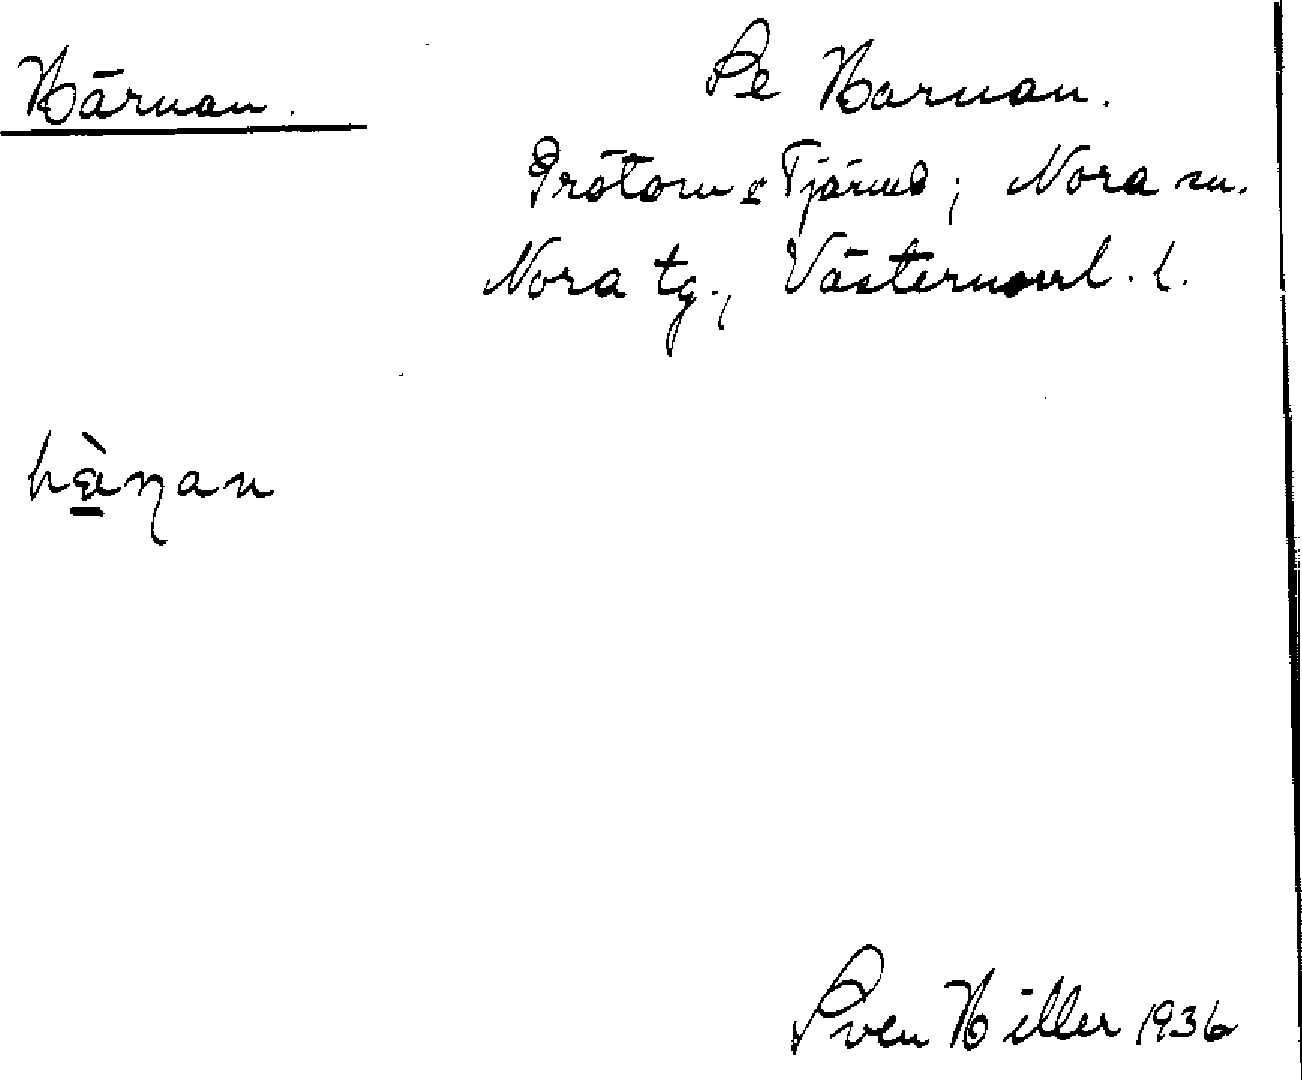 Härnan.
Se Harnan.
Prästom & Tjärnd; Nora sn.
Nora tg., Västernorrl. l.
hàṇan
Sven Hiller 1936